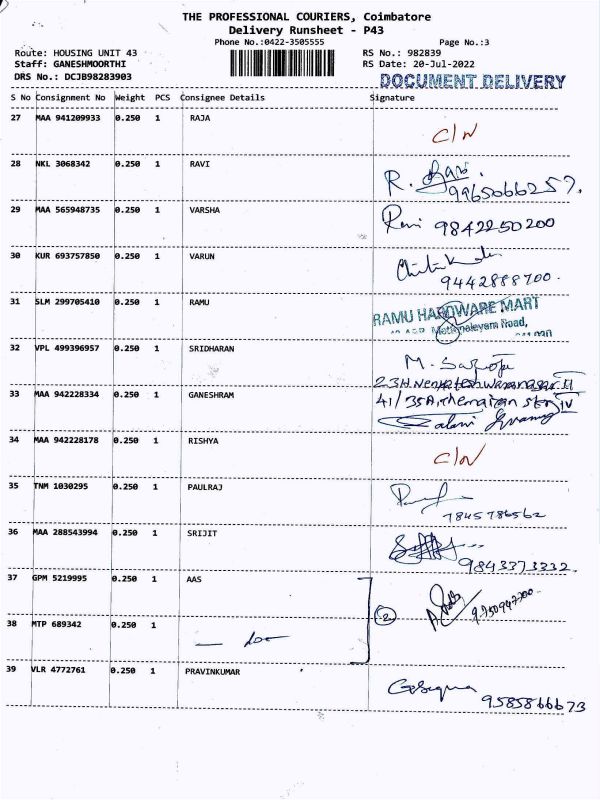 THE PROFESSIONAL COURIERS, Coimbatore
Delivery Runsheet - P43
Phone No.:0422-3505555
Page No.:3
Route: HOUSING UNIT 43
RS No.: 982839
Staff: GANESHMOORTHI
RS Date: 20-Jul-2022
DRS No.: DCJB98283903
DOCUMENT DELIVERY
S No Consignment No Weight PCS Consignee Details Signature
27 MAA 941209933 0.250 1 RAJA
C/N
28 NKL 3068342 0.250 1 RAVI
R. Ravi.
9965066257.
29 MAA 565948735 0.250 1 VARSHA
Ravi 9842250200
30 KUR 693757850 0.250 1 VARUN
9442888700.
31 SLM 299705410 0.250 1 RAMU
RAMU HARDWARE MART
Road,
32 VPL 499396957 0.250 1 SRIDHARAN
M. Saroja
23H. Venkateshwaranagar II
33 MAA 942228334 0.250 1 GANESHRAM
41/35A,
IV
34 MAA 942228178 0.250 1 RISHYA
C/N
35 TNM 1030295 0.250 1 PAULRAJ
7845786562
36 MAA 288543994 0.250 1 SRIJIT
9843373332.
37 GPM 5219995 0.250 1 AAS
2
38 MTP 689342 0.250 1
— do —
39 VLR 4772761 0.250 1 PRAVINKUMAR
9585866673